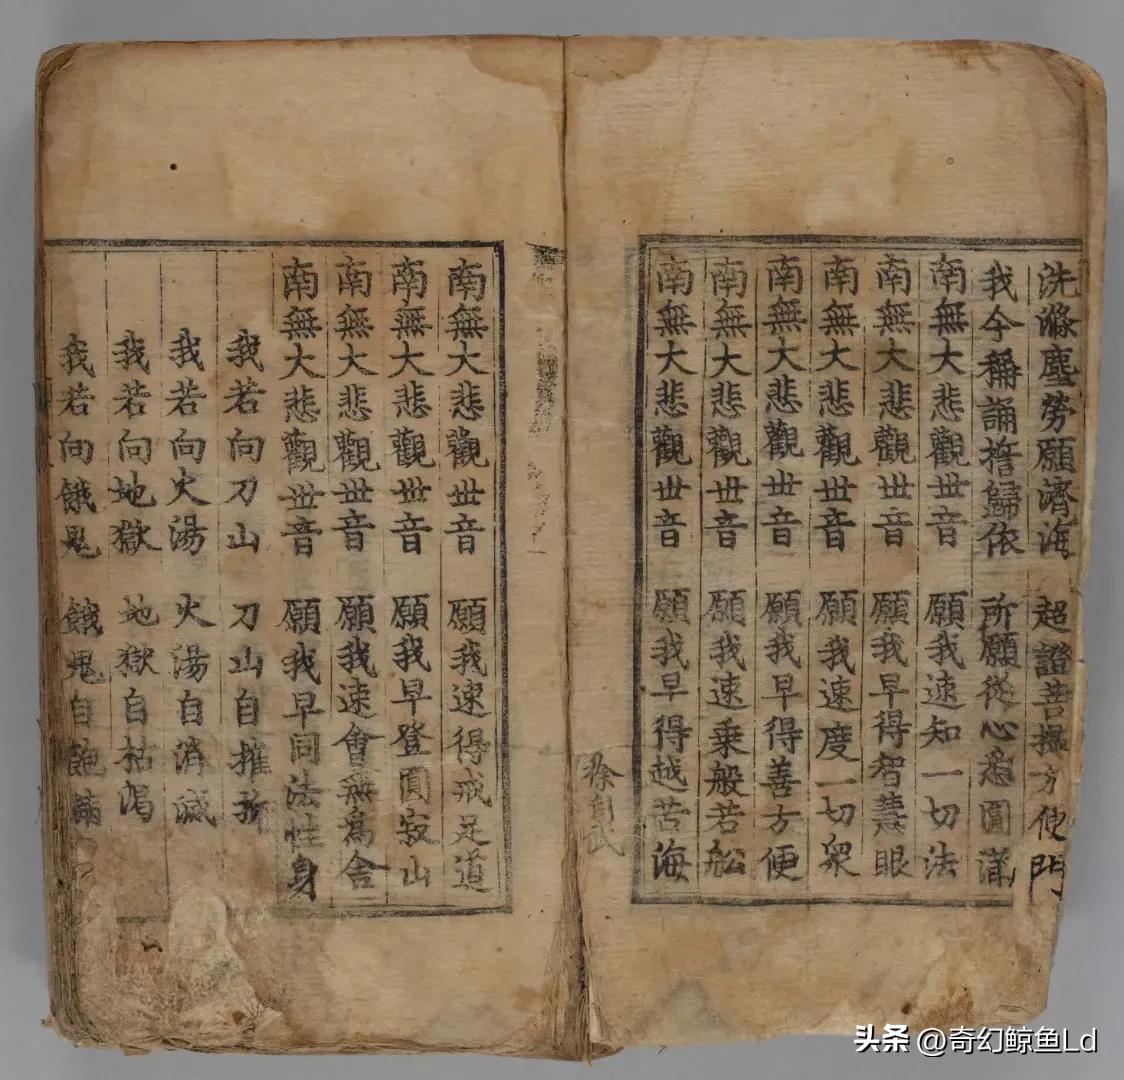 洗滌塵勞願濟海 超證菩提方便門
我今稱誦歸依 所願從心悉圓滿
南無大悲觀世音 願我速知一切法
南無大悲觀世音 願我早得智慧眼
南無大悲觀世音 願我速度一切衆
南無大悲觀世音 願我早得善方便
南無大悲觀世音 願我速乘般若舩
南無大悲觀世音 願我早得越苦海
南無大悲觀世音 願我速得戒足道
南無大悲觀世音 願我早登圓寂山
南無大悲觀世音 願我速會無爲舍
南無大悲觀世音 願我早同法性身
我若向刀山 刀山自摧折
我若向火湯 火湯自消滅
我若向地獄 地獄自枯渴
我若向餓鬼 餓鬼自飽滿
头条 @奇幻鲸鱼Ld